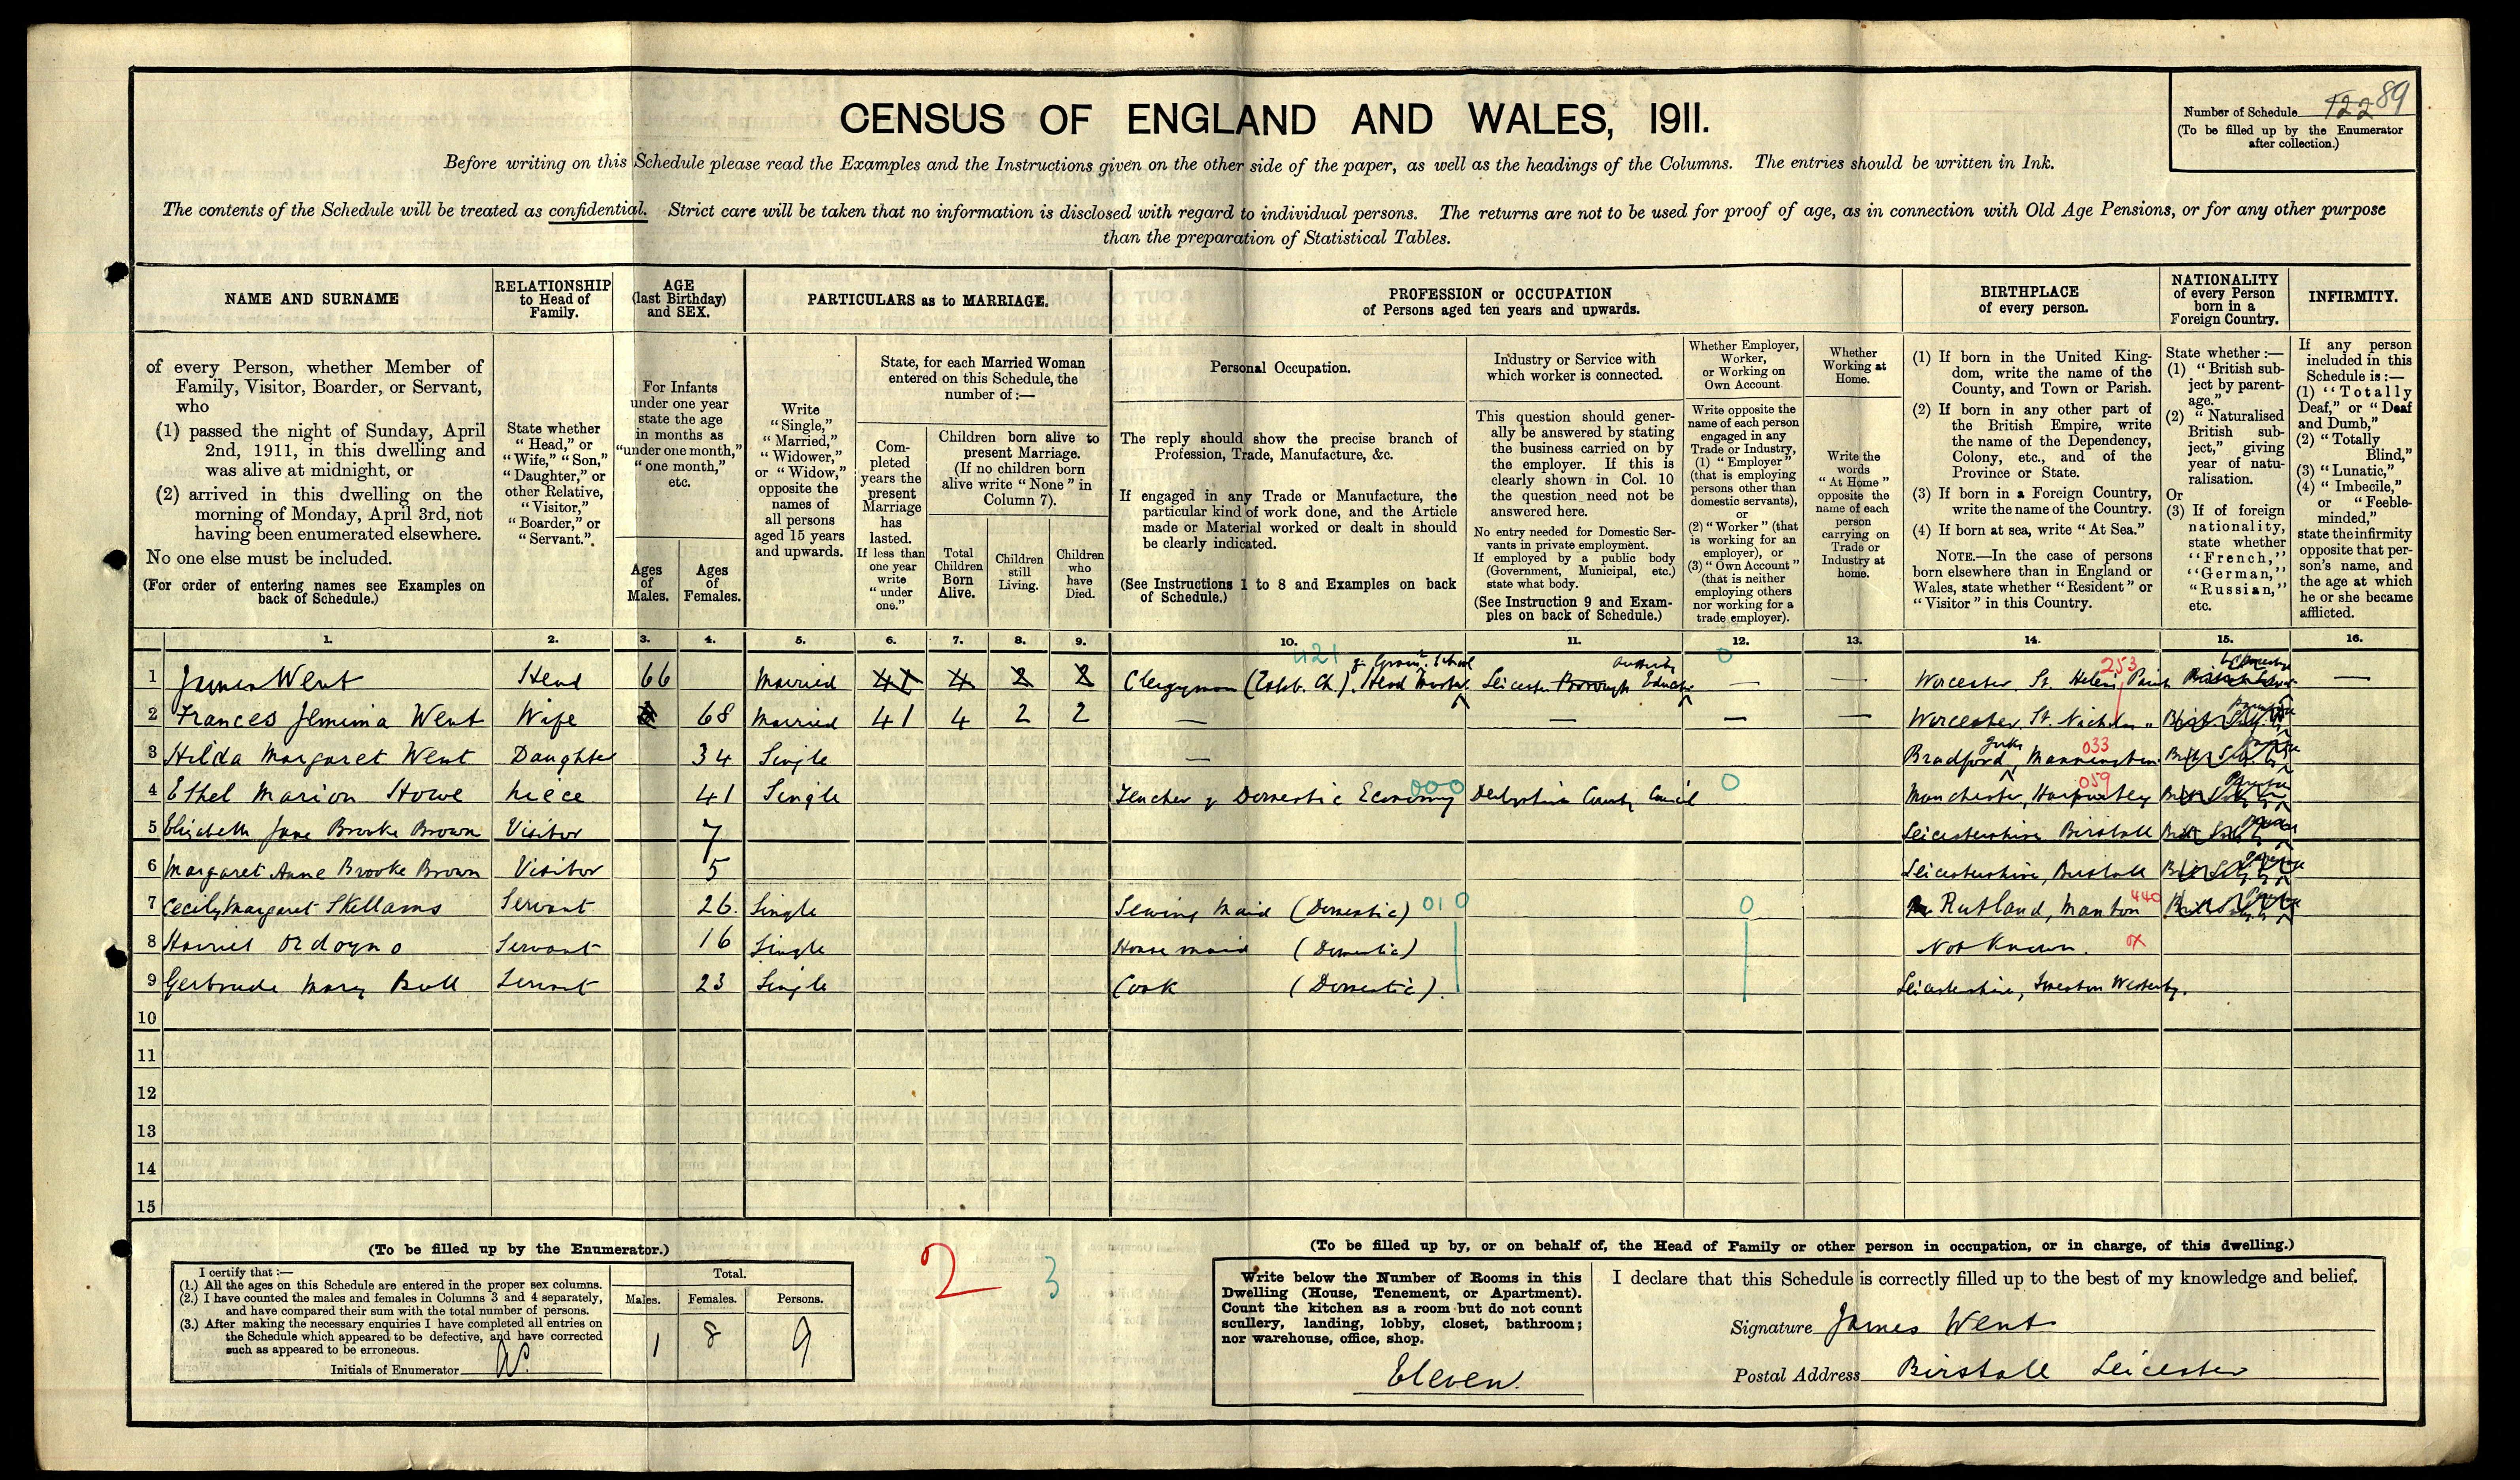 Number of Schedule 122 89
(To be filled up by the Enumerator
after collection.)
CENSUS OF ENGLAND AND WALES, 1911.
Before writing on this Schedule please read the Examples and the Instructions given on the other side of the paper, as well as the headings of the Columns. The entries should be written in Ink.
The contents of the Schedule will be treated as confidential. Strict care will be taken that no information is disclosed with regard to individual persons. The returns are not to be used for proof of age, as in connection with Old Age Pensions, or for any other purpose
than the preparation of Statistical Tables.
NAME AND SURNAME
of every Person, whether Member of
Family, Visitor, Boarder, or Servant,
who
(1) passed the night of Sunday, April
2nd, 1911, in this dwelling and
was alive at midnight, or
(2) arrived in this dwelling on the
morning of Monday, April 3rd, not
having been enumerated elsewhere.
No one else must be included.
(For order of entering names see Examples on
back of Schedule.)
RELATIONSHIP
to Head of
Family.
State whether
"Head," or
"Wife," "Son,"
"Daughter," or
other Relative,
"Visitor,"
"Boarder," or
"Servant."
AGE
(last Birthday)
and SEX.
For Infants
under one year
state the age
in months as
"under one month,"
"one month,"
etc.
Ages
of
Males.
Ages
of
Females.
PARTICULARS as to MARRIAGE.
Write
"Single,"
"Married,"
"Widower,"
or "Widow,"
opposite the
names of
all persons
aged 15 years
and upwards.
State, for each Married Woman
entered on this Schedule, the
number of:—
Com-
pleted
years the
present
Marriage
has
lasted.
If less than
one year
write
"under
one."
Children born alive to
present Marriage.
(If no children born
alive write "None" in
Column 7).
Total
Children
Born
Alive.
Children
still
Living.
Children
who
have
Died.
PROFESSION or OCCUPATION
of Persons aged ten years and upwards.
Personal Occupation.
The reply should show the precise branch of
Profession, Trade, Manufacture, &c.
If engaged in any Trade or Manufacture, the
particular kind of work done, and the Article
made or Material worked or dealt in should
be clearly indicated.
(See Instructions 1 to 8 and Examples on back
of Schedule.)
Industry or Service with
which worker is connected.
This question should gener-
ally be answered by stating
the business carried on by
the employer. If this is
clearly shown in Col. 10
the question need not be
answered here.
No entry needed for Domestic Ser-
vants in private employment.
If employed by a public body
(Government, Municipal, etc.)
state what body.
(See Instruction 9 and Exam-
ples on back of Schedule.)
Whether Employer,
Worker,
or Working on
Own Account
Write opposite the
name of each person
engaged in any
Trade or Industry,
(1) "Employer"
(that is employing
persons other than
domestic servants),
or
(2) "Worker" (that
is working for an
employer), or
(3) "Own Account"
(that is neither
employing others
nor working for a
trade employer).
Whether
Working at
Home.
Write the
words
"At Home"
opposite the
name of each
person
carrying on
Trade or
Industry at
home.
BIRTHPLACE
of every person.
(1) If born in the United King-
dom, write the name of the
County, and Town or Parish.
(2) If born in any other part of
the British Empire, write
the name of the Dependency,
Colony, etc., and of the
Province or State.
(3) If born in a Foreign Country,
write the name of the Country.
(4) If born at sea, write "At Sea."
NOTE.—In the case of persons
born elsewhere than in England or
Wales, state whether "Resident" or
"Visitor" in this Country.
NATIONALITY
of every Person
born in a
Foreign Country.
State whether:—
(1) "British sub-
ject by parent-
age."
(2) "Naturalised
British sub-
ject," giving
year of natu-
ralisation.
Or
(3) If of foreign
nationality,
state whether
"French,"
"German,"
"Russian,"
etc.
INFIRMITY.
If any person
included in this
Schedule is:—
(1) "Totally
Deaf," or "Deaf
and Dumb,"
(2) "Totally
Blind,"
(3) "Lunatic,"
(4) "Imbecile,"
or "Feeble-
minded,"
state the infirmity
opposite that per-
son's name, and
the age at which
he or she became
afflicted.
1. 2. 3. 4. 5. 6. 7. 8. 9. 10. 11. 12. 13. 14. 15. 16.
421 of Gram. School Authority 0 253
1 James Went Head 66 Married 41 4 2 2 Clergyman (Estab. Ch.). Head Master Leicester Borough Educn — — Worcester, St. Helens Parish —
2 Frances Jemima Went Wife 68 Married 41 4 2 2 — — — — Worcester, St. Nicholas "
3 Hilda Margaret Went Daughter 34 Single — Bradford, Yorks Manningham 033
4 Ethel Marion Howe Niece 41 Single Teacher of Domestic Economy 000 Derbyshire County Council 0 Manchester, Harpurhey 059
5 Elizabeth Jane Brooke Brown Visitor 7 Leicestershire, Birstall
6 Margaret Anne Brooke Brown Visitor 5 Leicestershire, Birstall
7 Cecily Margaret Skellams Servant 26. Single Sewing Maid (Domestic) 010 0 Rutland, Manton 440
8 Harriet Ordoyno Servant 16 Single House maid (Domestic) Not Known. ox
9 Gertrude Mary Bull Servant 23 Single Cook (Domestic). Leicestershire, Smeeton Westerby.
10
11
12
13
14
15
(To be filled up by the Enumerator.)
I certify that:—
(1.) All the ages on this Schedule are entered in the proper sex columns.
(2.) I have counted the males and females in Columns 3 and 4 separately,
and have compared their sum with the total number of persons.
(3.) After making the necessary enquiries I have completed all entries on
the Schedule which appeared to be defective, and have corrected
such as appeared to be erroneous.
Initials of Enumerator
Total.
Males. Females. Persons.
1 8 9
2 3
(To be filled up by, or on behalf of, the Head of Family or other person in occupation, or in charge, of this dwelling.)
Write below the Number of Rooms in this
Dwelling (House, Tenement, or Apartment).
Count the kitchen as a room but do not count
scullery, landing, lobby, closet, bathroom;
nor warehouse, office, shop.
Eleven.
I declare that this Schedule is correctly filled up to the best of my knowledge and belief.
Signature James Went
Postal Address Birstall Leicester